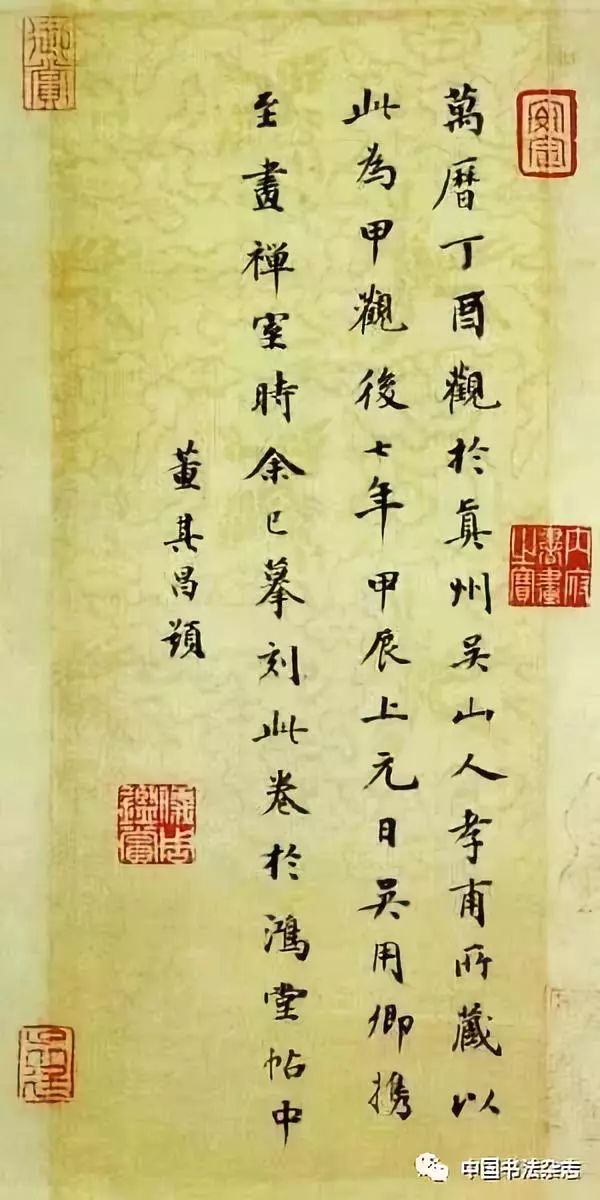 萬曆丁酉觀於真州吳山人孝甫所藏以
此為甲觀後七年甲辰上元日吳用卿携
至畫禅室時余已摹刻此卷於鴻堂帖中
董其昌題
御賞
内府書畫之寶
儀周鑑賞
中国书法杂志